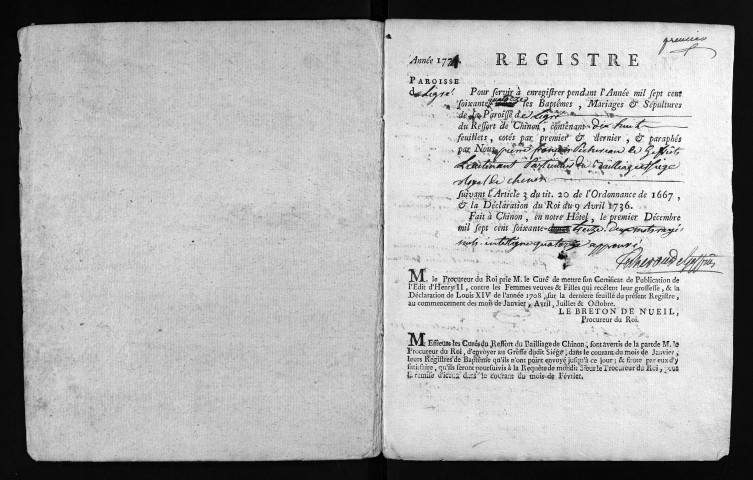 premier
Année 1774. REGISTRE
PAROISSE
de Ligré
Pour servir à enregistrer pendant l'Année mil sept cent
soixante quatorze les Baptêmes, Mariages & Sépultures
de la Paroisse de Ligré
du Ressort de Chinon, contenant dix huit
feuillets, cotés par premier & dernier, & paraphés
par Nous pierre françois Pichereau de
Lieutenant Particulier du Bailliage et Siège
Royal de chinon
suivant l'Article 3 du tit. 20 de l'Ordonnance de 1667,
& la Déclaration du Roi du 9 Avril 1736.
Fait à Chinon, en notre Hôtel, le premier Décembre
mil sept cent soixante treize. deux mots rayés
mots interligne quatorze approuvé
M. le Procureur du Roi prie M. le Curé de mettre son Certificat de Publication de
l'Edit d'Henry II, contre les Femmes veuves & Filles qui recèlent leur grossesse, & la
Déclaration de Louis XIV de l'année 1708, sur la derniere feuille du présent Registre,
au commencement des mois de Janvier, Avril, Juillet & Octobre.
LE BRETON DE NUEIL,
Procureur du Roi.
Messieurs les Curés du Ressort du Bailliage de Chinon, sont avertis de la part de M. le
Procureur du Roi, d'envoyer au Greffe dudit Siège, dans le courant du mois de Janvier,
leurs Registres de Baptême qu'ils n'ont point envoyé jusqu'à ce jour; & faute par eux d'y
satisfaire, qu'ils seront poursuivis à la Requête de mondit Sieur le Procureur du Roi, pour
la remise d'iceux dans le courant du mois de Février.